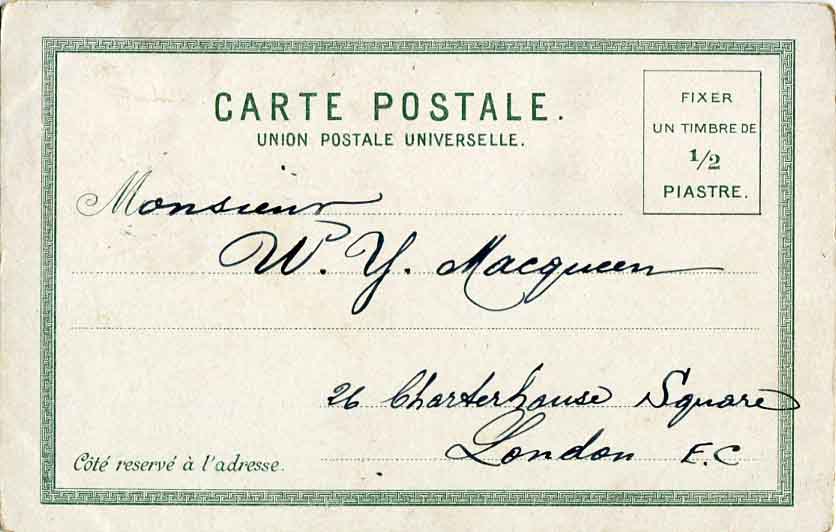 CARTE POSTALE.
UNION POSTALE UNIVERSELLE.
FIXER
UN TIMBRE DE
1/2
PIASTRE.
Monsieur
W. Y. Macqueen
26 Charterhouse Square
London E.C
Côté reservé à l'adresse.